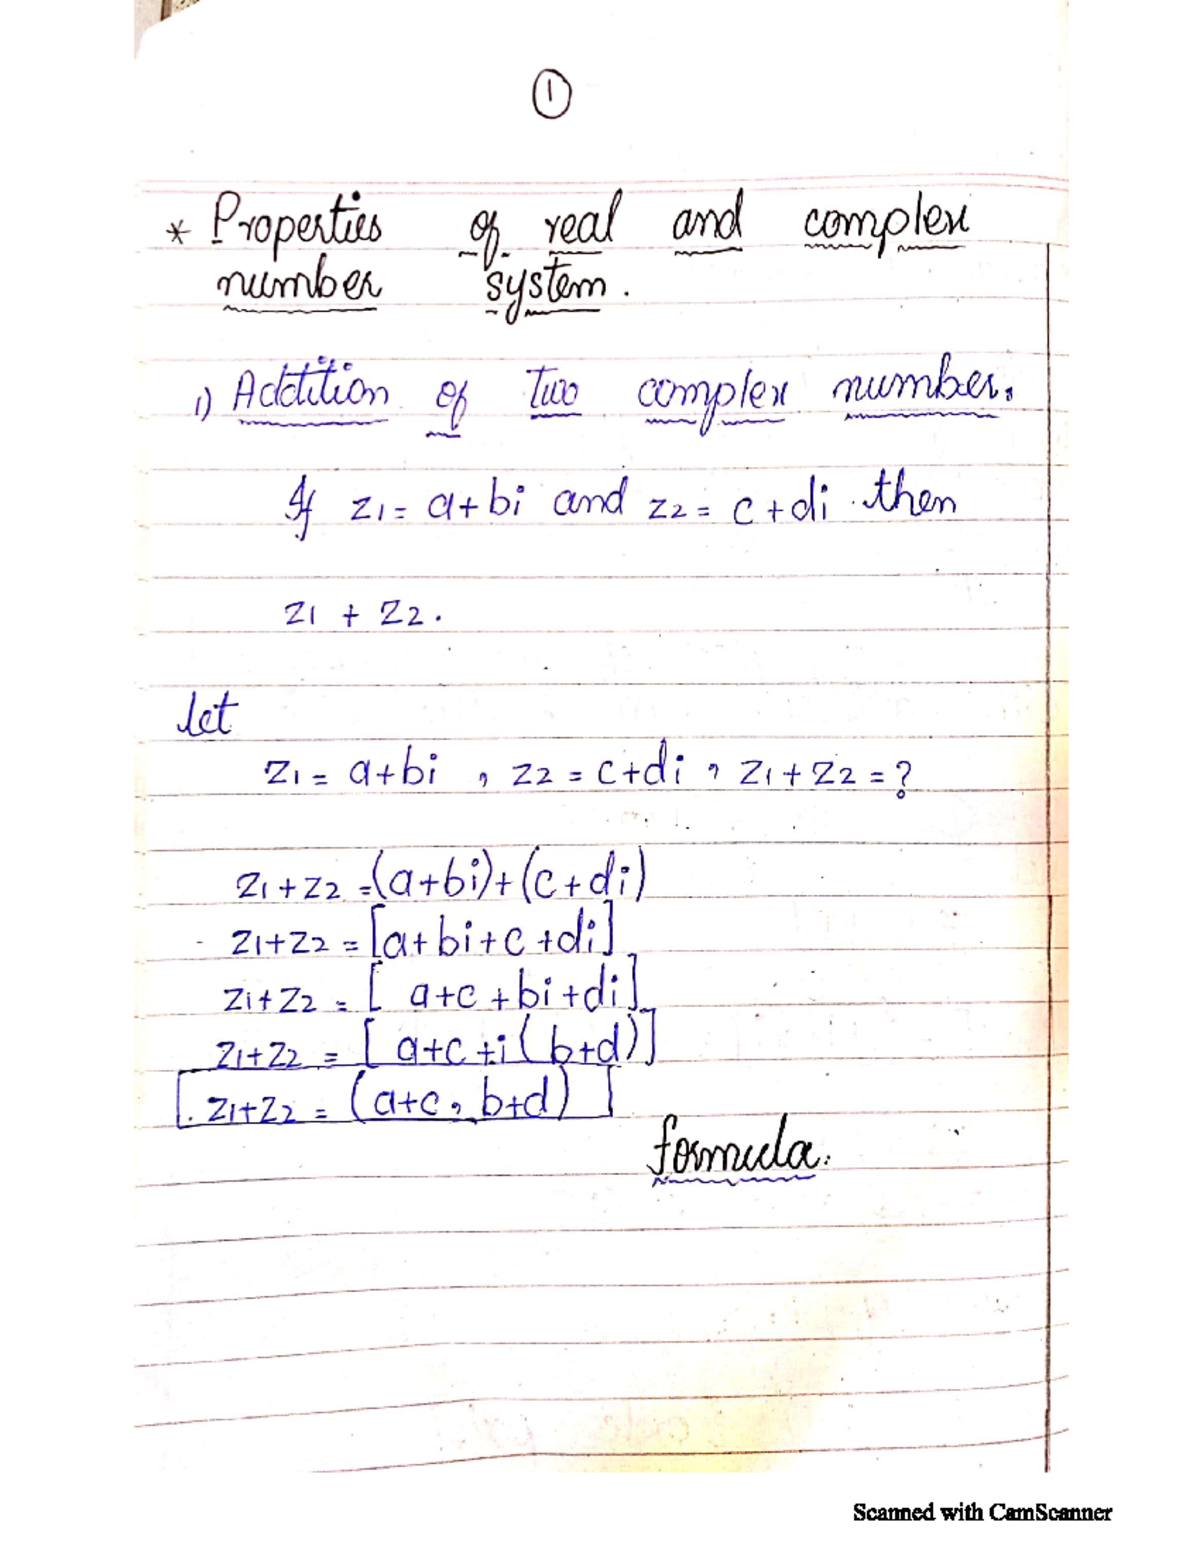 1
* Properties of real and complex
number system.
1) Addition of two complex number.
If z1 = a+bi and z2 = c+di then
z1 + z2.
let
z1 = a+bi , z2 = c+di , z1+z2 = ?
z1+z2 =(a+bi)+(c+di)
z1+z2 = [a+bi+c+di]
z1+z2 = [a+c+bi+di]
z1+z2 = [a+c+i(b+d)]
z1+z2 = (a+c, b+d)
formula.
Scanned with CamScanner